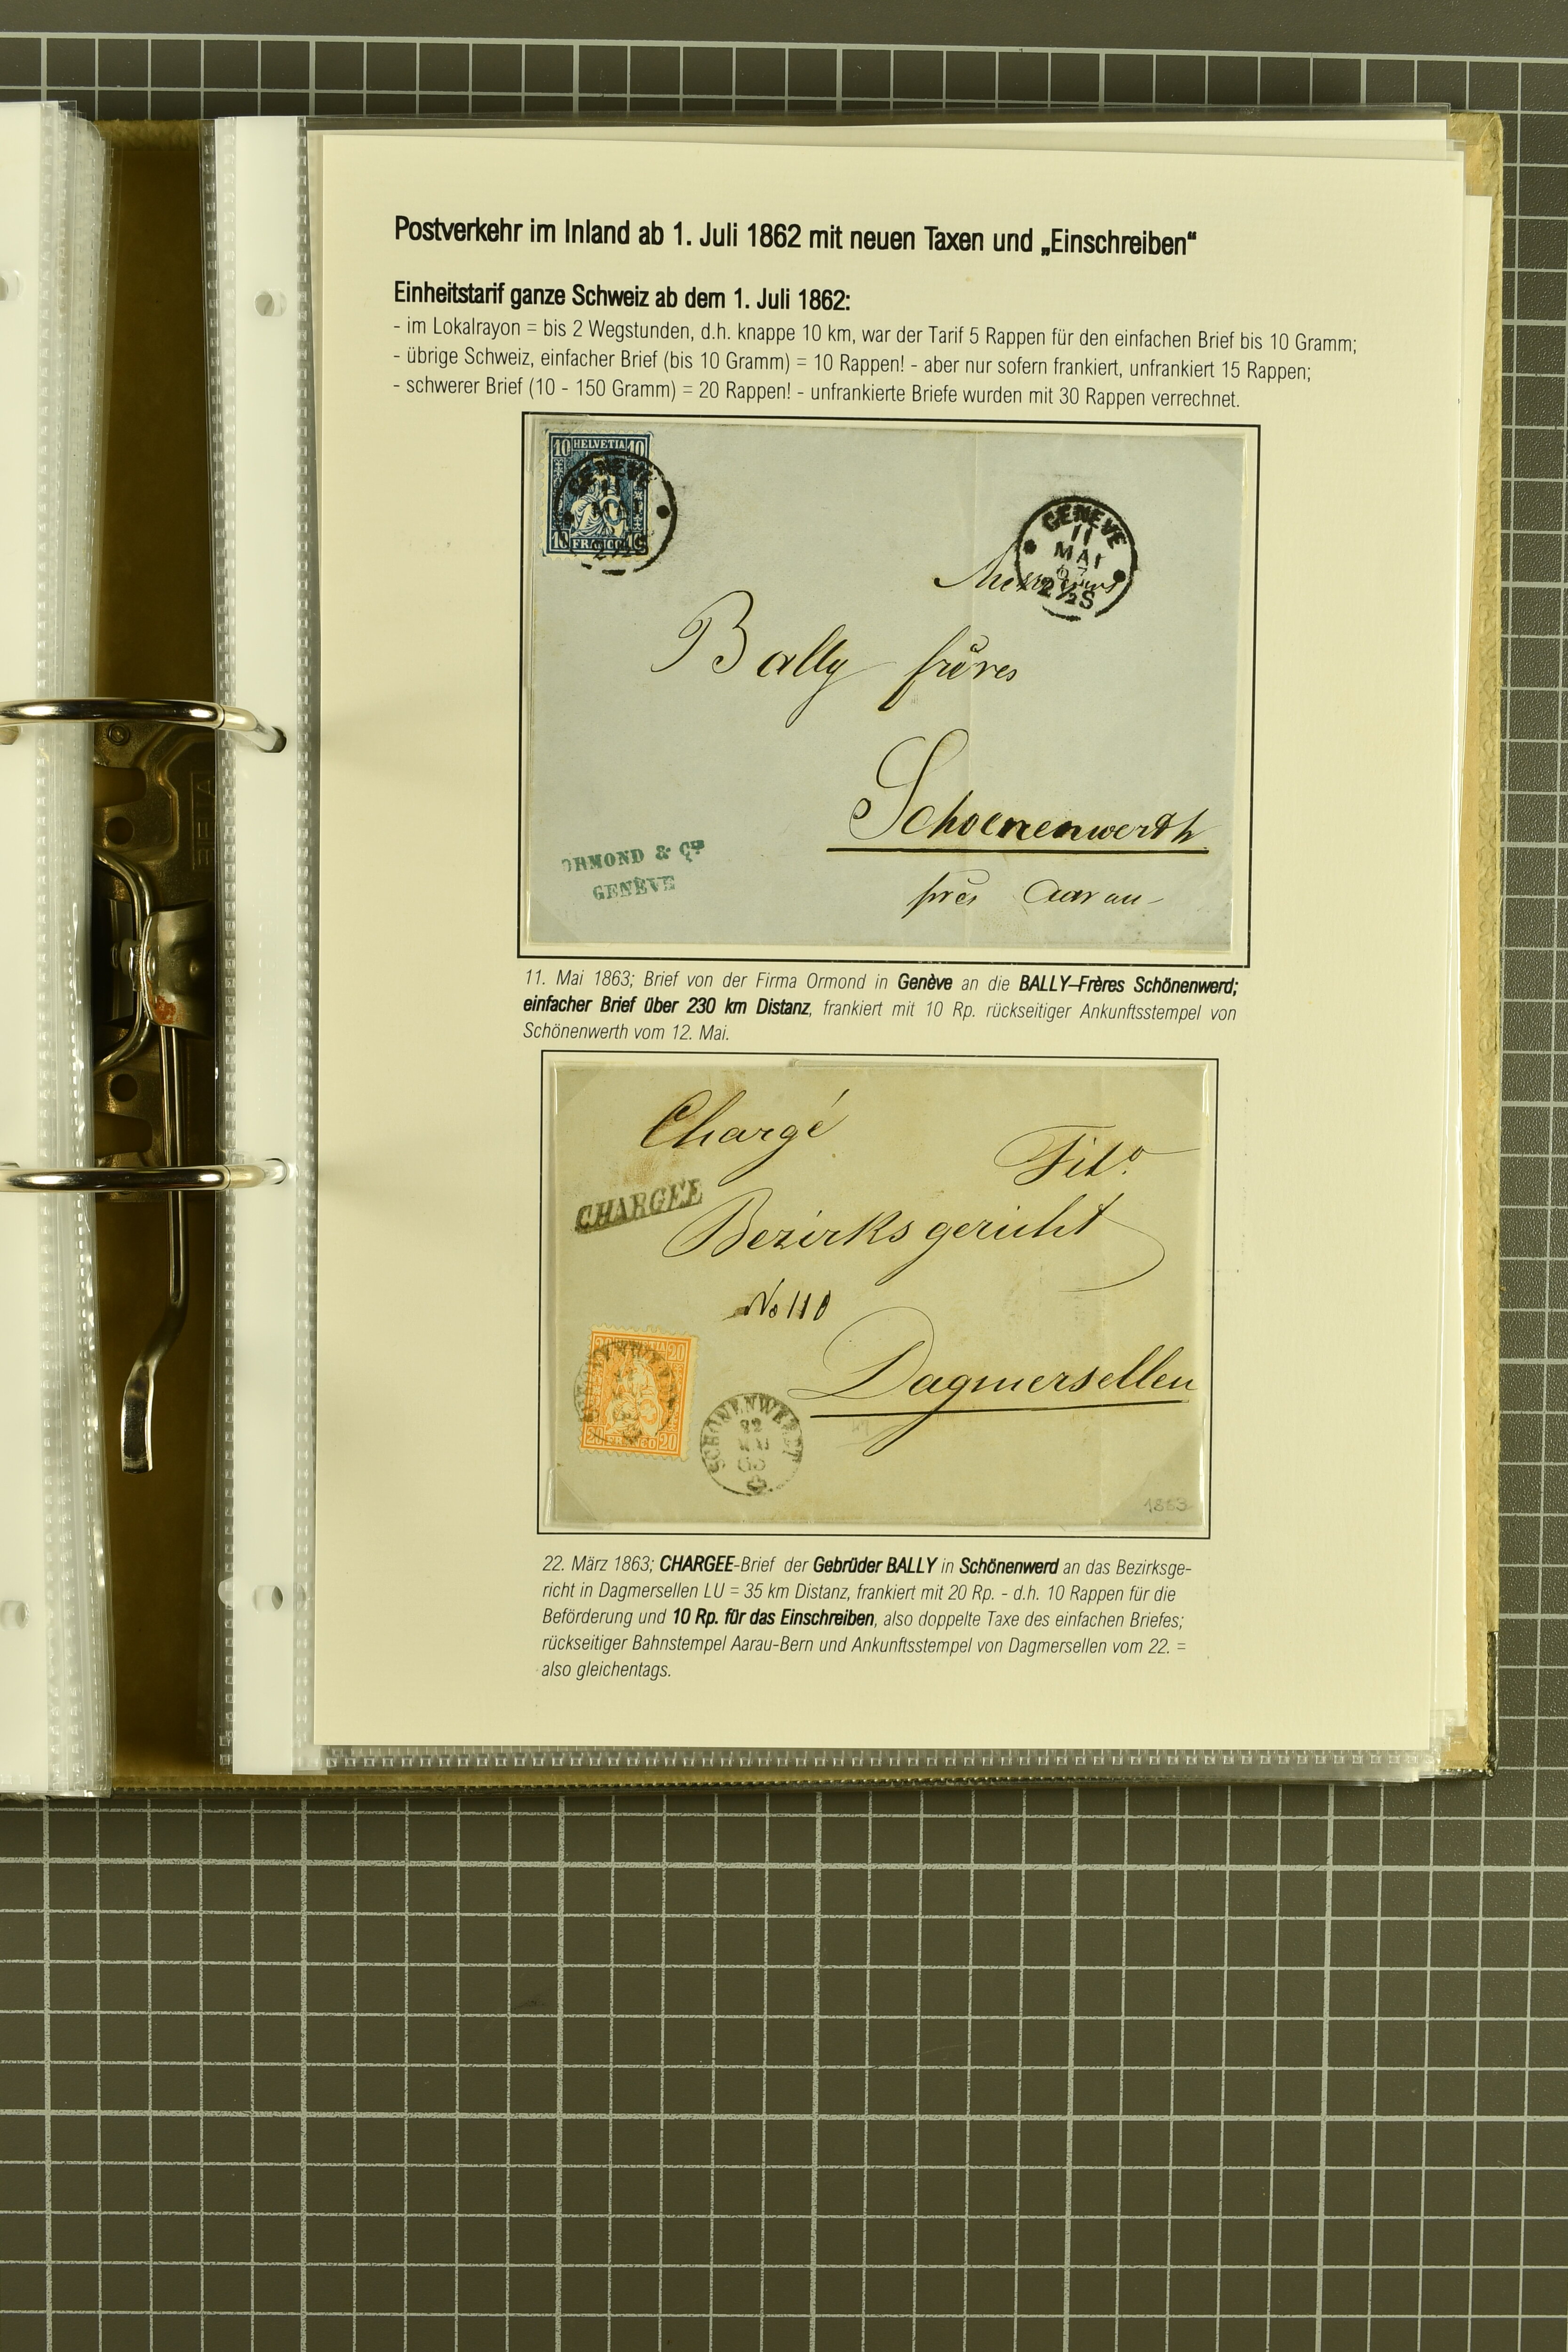 Postverkehr im Inland ab 1. Juli 1862 mit neuen Taxen und „Einschreiben“
Einheitstarif ganze Schweiz ab dem 1. Juli 1862:
- im Lokalrayon = bis 2 Wegstunden, d.h. knappe 10 km, war der Tarif 5 Rappen für den einfachen Brief bis 10 Gramm;
- übrige Schweiz, einfacher Brief (bis 10 Gramm) = 10 Rappen! - aber nur sofern frankiert, unfrankiert 15 Rappen;
- schwerer Brief (10 - 150 Gramm) = 20 Rappen! - unfrankierte Briefe wurden mit 30 Rappen verrechnet.
10 HELVETIA 10
GENÈVE
11
MAI
10 FRANCO 10
GENÈVE
11
MAI
2½S
Messieurs
Bally frères
Schoenenwerth
près Aarau
ORMOND & Cie
GENÈVE
11. Mai 1863; Brief von der Firma Ormond in Genève an die BALLY–Frères Schönenwerd;
einfacher Brief über 230 km Distanz, frankiert mit 10 Rp. rückseitiger Ankunftsstempel von
Schönenwerth vom 12. Mai.
Chargé
Tit.
CHARGEE
Bezirksgericht
No 110
Dagmersellen
HELVETIA 20
20 FRANCO 20
SCHÖNENWERT
22
63
1863
22. März 1863; CHARGEE-Brief der Gebrüder BALLY in Schönenwerd an das Bezirksge-
richt in Dagmersellen LU = 35 km Distanz, frankiert mit 20 Rp. - d.h. 10 Rappen für die
Beförderung und 10 Rp. für das Einschreiben, also doppelte Taxe des einfachen Briefes;
rückseitiger Bahnstempel Aarau-Bern und Ankunftsstempel von Dagmersellen vom 22. =
also gleichentags.